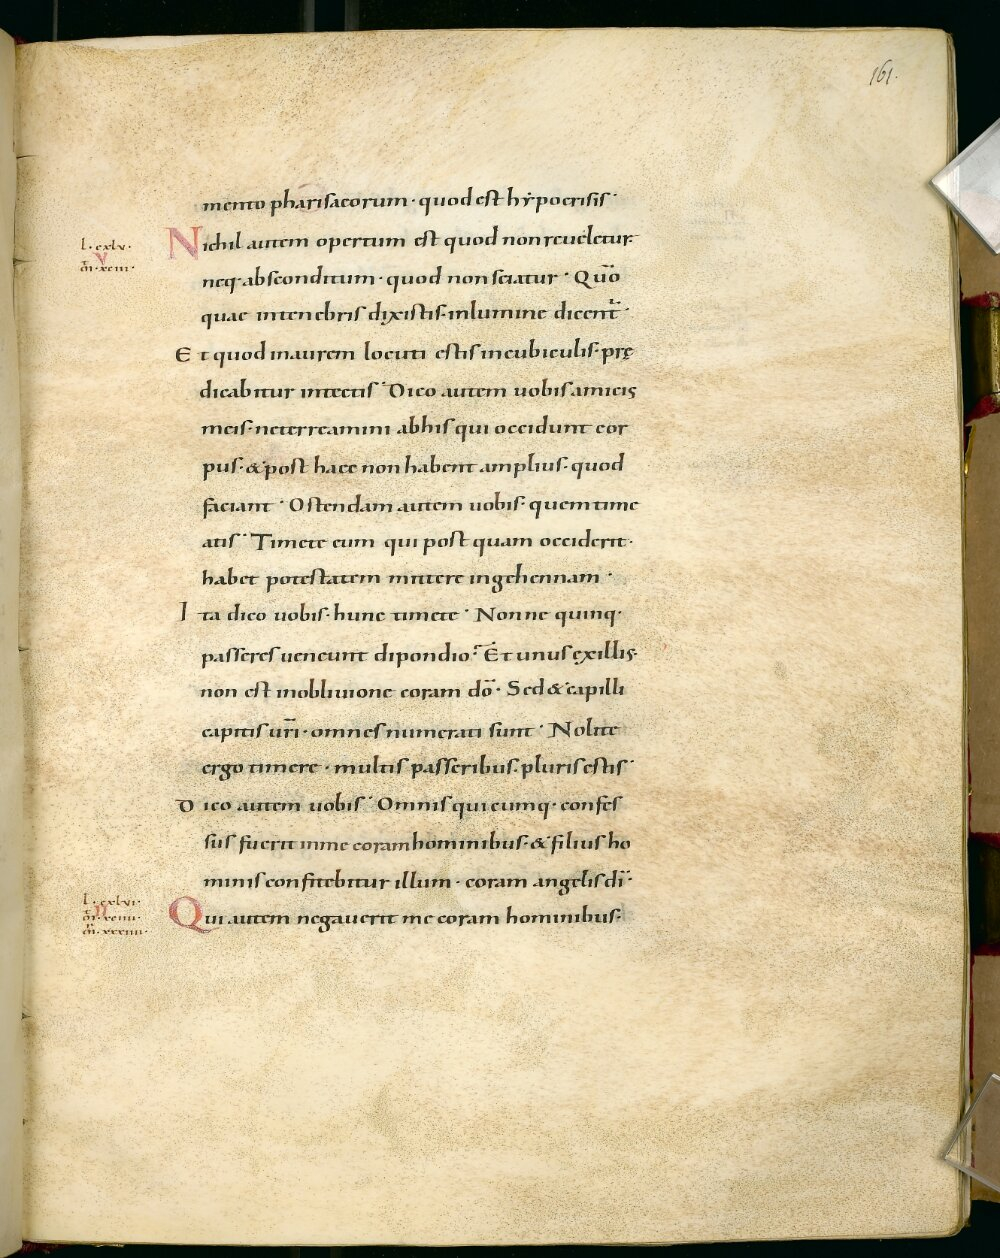 161.
mento pharisaeorum · quod est hẏpocrisis ·
l · cxlv ·
v
m̄ · xciii ·
Nichil autem opertum est quod non reueletur ·
neq · absconditum · quod non sciatur · Quō
quae intenebris dixistis · inlumine dicent̄ ·
Et quod inaurem locuti estis incubiculis · prę
dicabitur intectis · Dico autem uobis amicis
meis · neterreamini abhis qui occidunt cor
pus · & post haec non habent amplius · quod
faciant · Ostendam autem uobis · quem time
atis · Timete eum qui post quam occiderit ·
habet potestatem mittere ingehennam ·
Ita dico uobis · hunc timete · Nonne quinq ·
passeres ueneunt dipondio ? Et unus exillis ·
non est inobliuione coram dō · Sed & capilli
capitis urī · omnes numerati sunt · Nolite
ergo timere · multis passeribus · pluris estis ·
Dico autem uobis · Omnis quicumq · confes
sus fuerit inme coram hominibus · & filius ho
minis confitebitur illum · coram angelis dī ·
l · cxlvi ·
m̄ · xciiii ·
m̄ · xxxiiii ·
Qui autem negauerit me coram hominibus ·